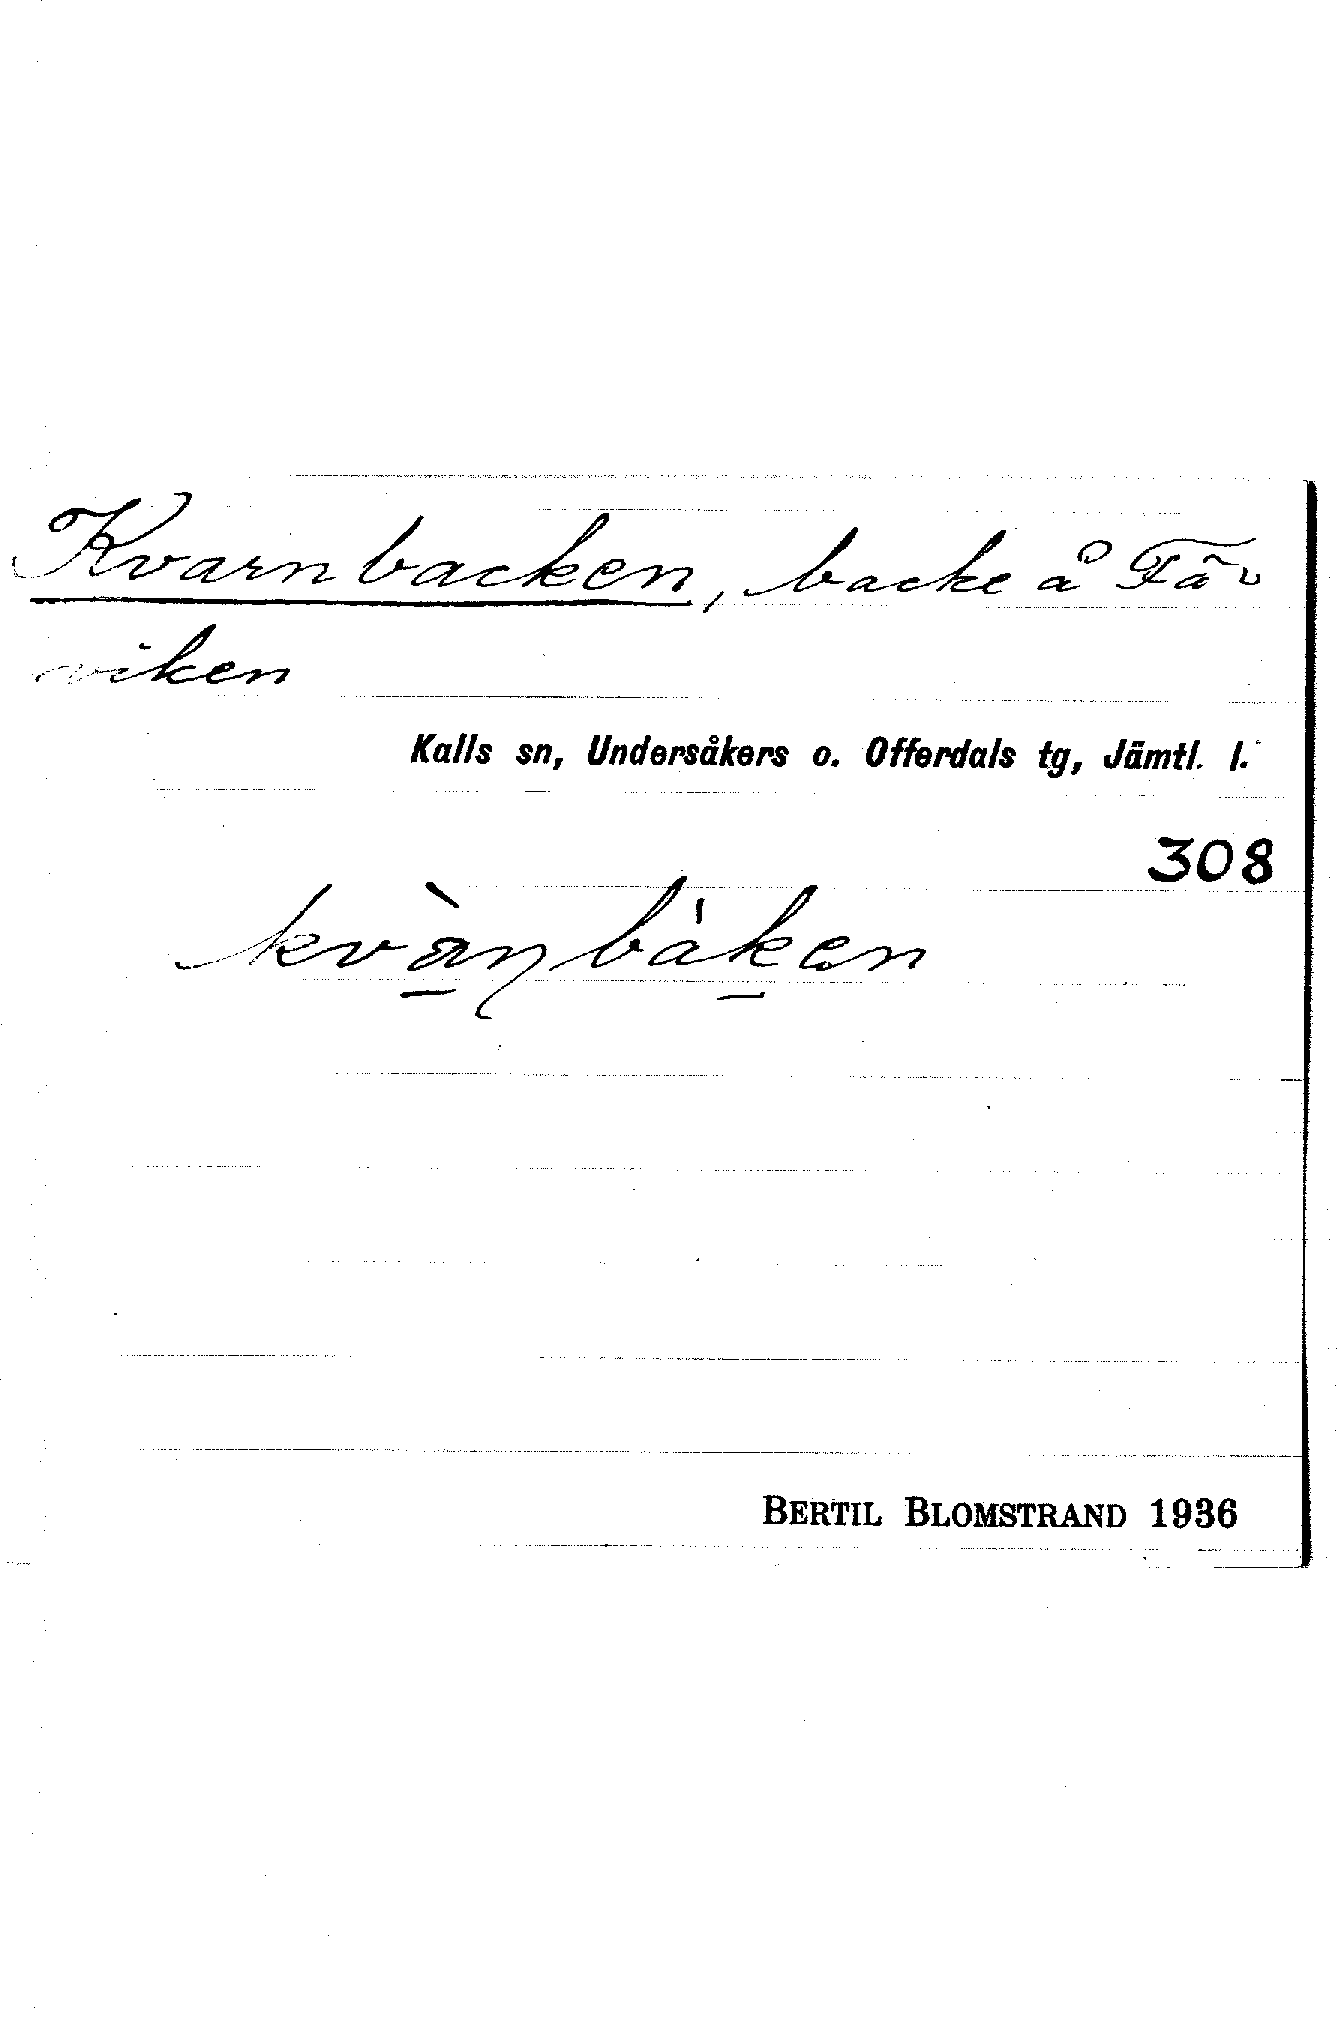 Kvarnbacken, backe å Fä-
viken
Kalls sn, Undersåkers o. Offerdals tg, Jämtl. l.
308
kvàṇbáken
BERTIL BLOMSTRAND 1936